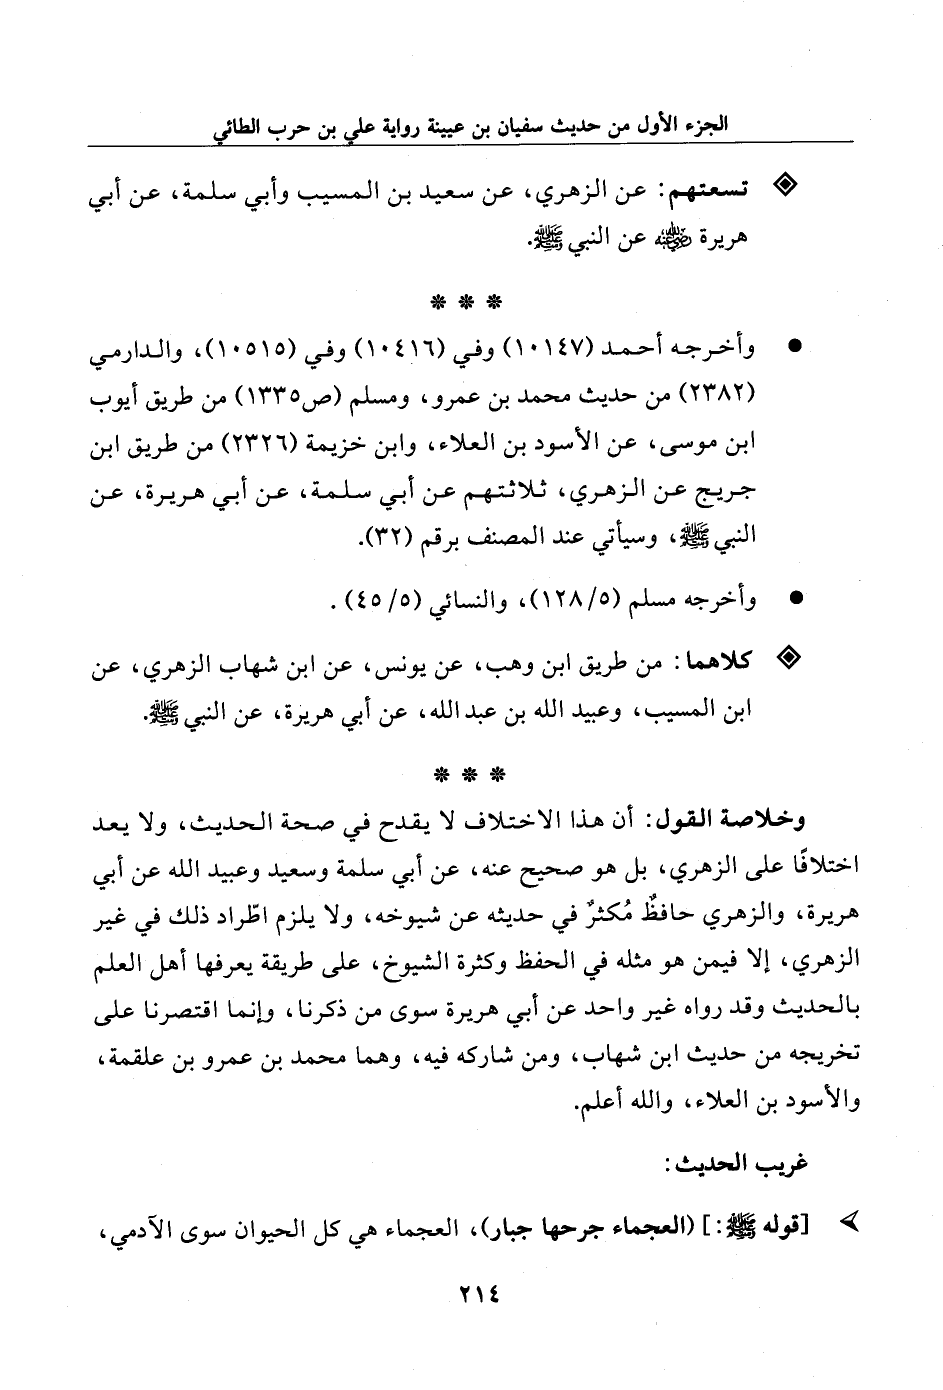 الجزء الأول من حديث سفيان بن عيينة رواية علي بن حرب الطائي
تسعتهم: عن الزهري، عن سعيد بن المسيب وأبي سلمة، عن أبي
هريرة رضي الله عنه عن النبي ﷺ.
* * *
● وأخرجه أحمد (١٠١٤٧) وفي (١٠٤١٦) وفي (١٠٥١٥)، والدارمي
(٢٣٨٢) من حديث محمد بن عمرو، ومسلم (ص١٣٣٥) من طريق أيوب
ابن موسى، عن الأسود بن العلاء، وابن خزيمة (٢٣٢٦) من طريق ابن
جريج عن الزهري، ثلاثتهم عن أبي سلمة، عن أبي هريرة، عن
النبي ﷺ، وسيأتي عند المصنف برقم (٣٢).
● وأخرجه مسلم (١٢٨/٥)، والنسائي (٤٥/٥) .
كلاهما: من طريق ابن وهب، عن يونس، عن ابن شهاب الزهري، عن
ابن المسيب، وعبيد الله بن عبد الله، عن أبي هريرة، عن النبي ﷺ.
* * *
وخلاصة القول: أن هذا الاختلاف لا يقدح في صحة الحديث، ولا يعد
اختلافًا على الزهري، بل هو صحيح عنه، عن أبي سلمة وسعيد وعبيد الله عن أبي
هريرة، والزهري حافظٌ مُكثرٌ في حديثه عن شيوخه، ولا يلزم اطّراد ذلك في غير
الزهري، إلا فيمن هو مثله في الحفظ وكثرة الشيوخ، على طريقة يعرفها أهل العلم
بالحديث وقد رواه غير واحد عن أبي هريرة سوى من ذكرنا، وإنما اقتصرنا على
تخريجه من حديث ابن شهاب، ومن شاركه فيه، وهما محمد بن عمرو بن علقمة،
والأسود بن العلاء، والله أعلم.
غريب الحديث:
[قوله ﷺ:] (العجماء جرحها جبار)، العجماء هي كل الحيوان سوى الآدمي،
٢١٤